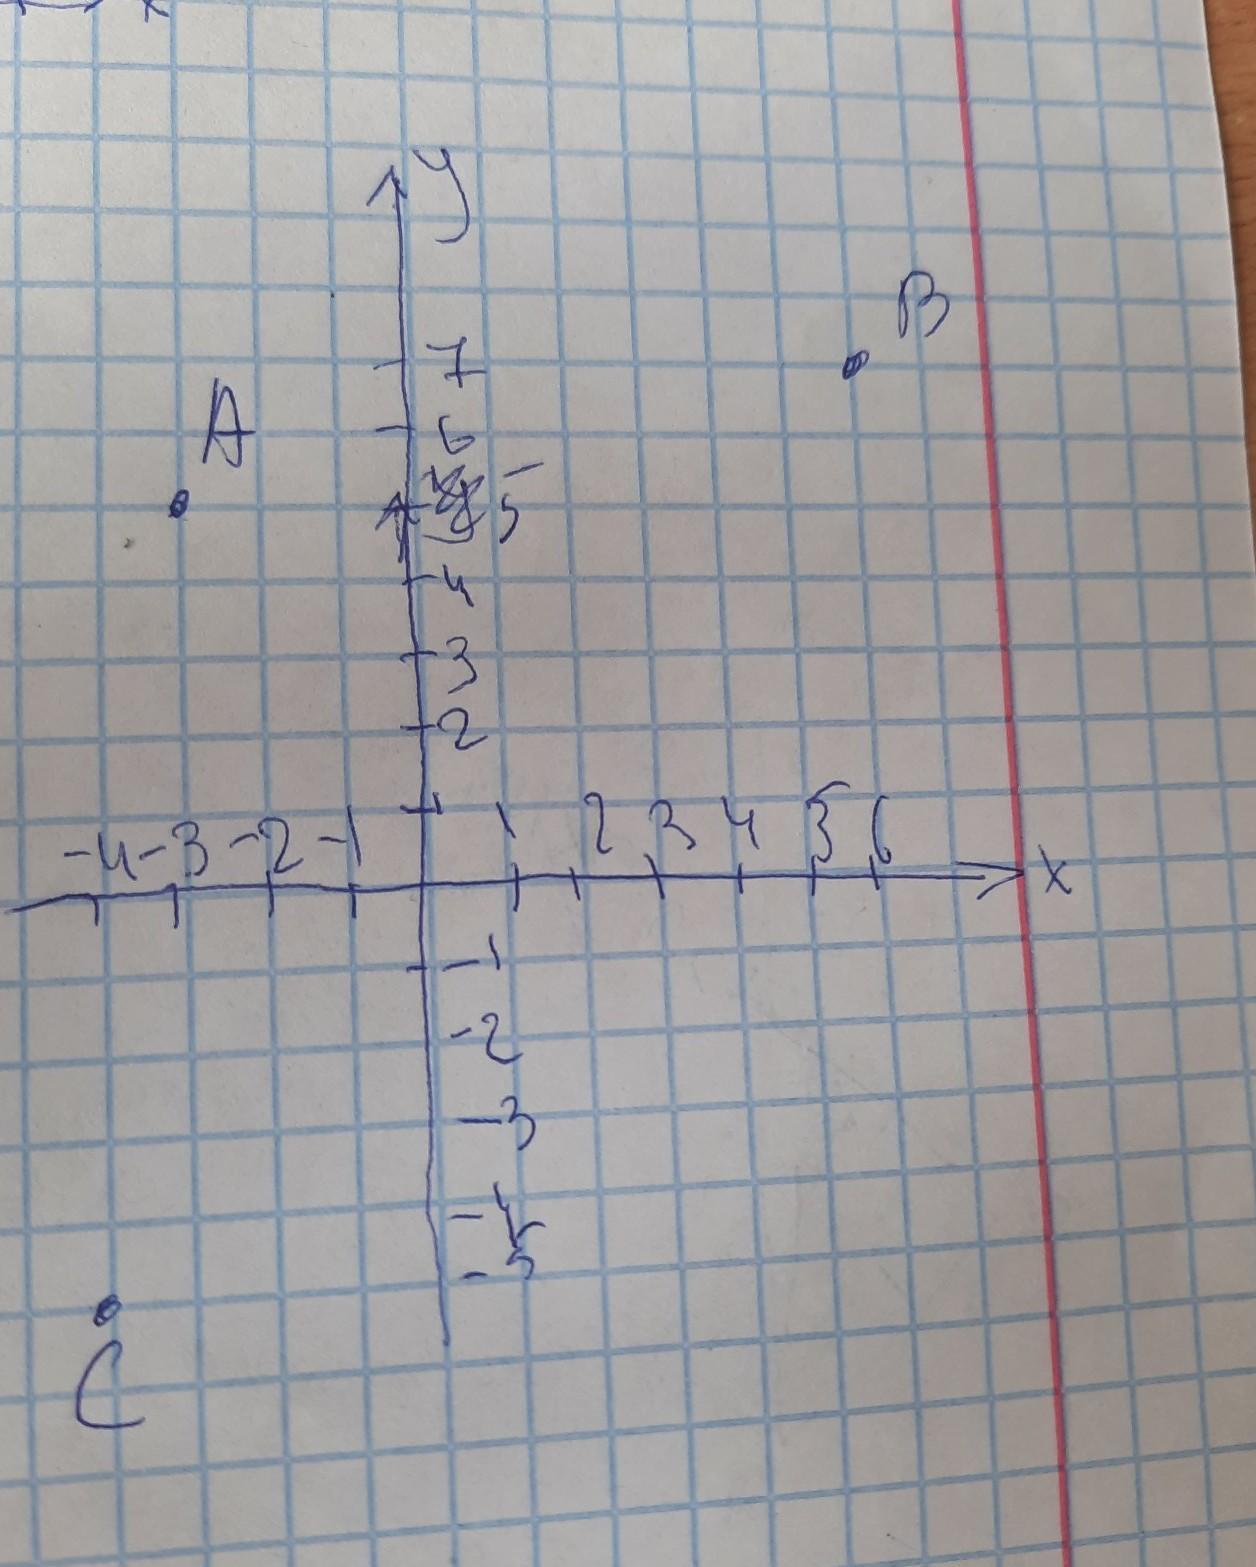 x
y
B
7
A
6
5
4
3
2
-4 -3 -2 -1 1 2 3 4 5 6
x
-1
-2
-3
-4
-5
C